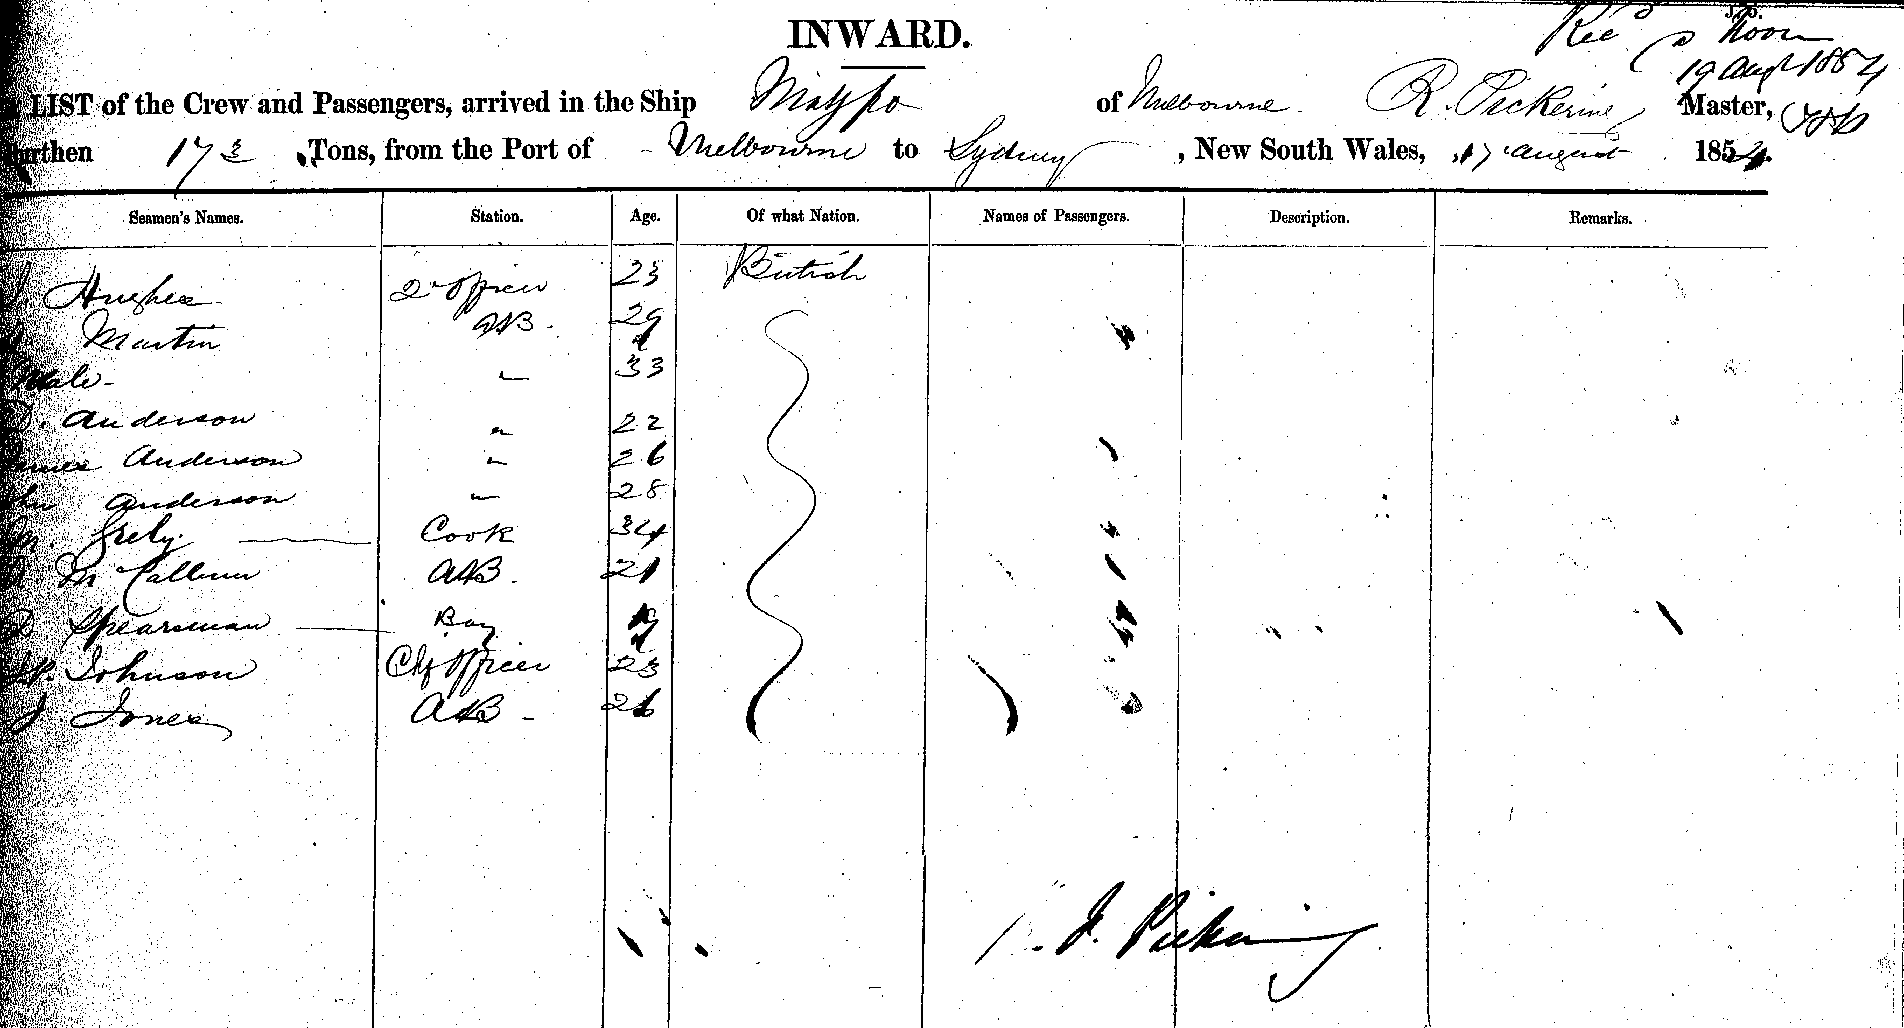 INWARD.
Rec'd Noon
19 Augt 1854
LIST of the Crew and Passengers, arrived in the Ship Maypo of Melbourne. R. Pickering Master,
Burthen 173 Tons, from the Port of Melbourne to Sydney, New South Wales, 17 August 1854.
Seamen's Names. Station. Age. Of what Nation. Names of Passengers. Description. Remarks.
J. Hughes 2d Officer 23 British
Martin AB. 29
Male " 33
D. Anderson " 22
James Anderson " 26
John Anderson " 28
Grely Cook 34
McCallum AB. 21
D Spearman Boy
P. Johnson Chf Officer 23
J Jones AB 26
J. Pickering